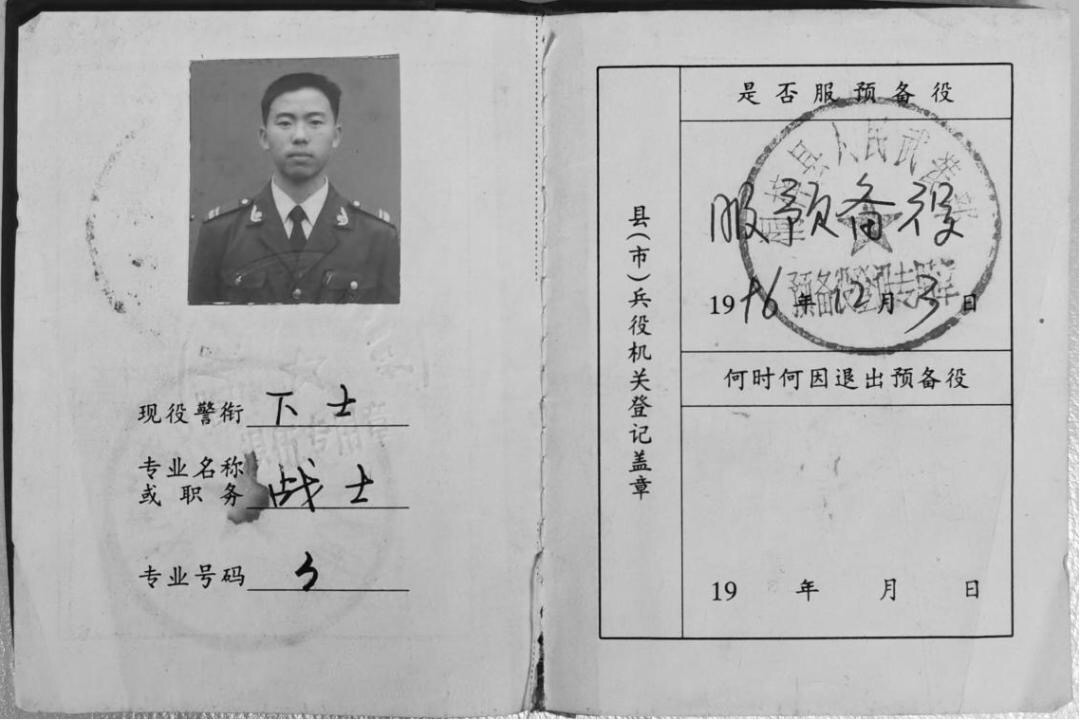 现役警衔 下士
专业名称
或职务 战士
专业号码
县(市)兵役机关登记盖章
是否服预备役
县人民武装部
服预备役
预备役登记专用章
19 年12月3日
何时何因退出预备役
19 年 月 日